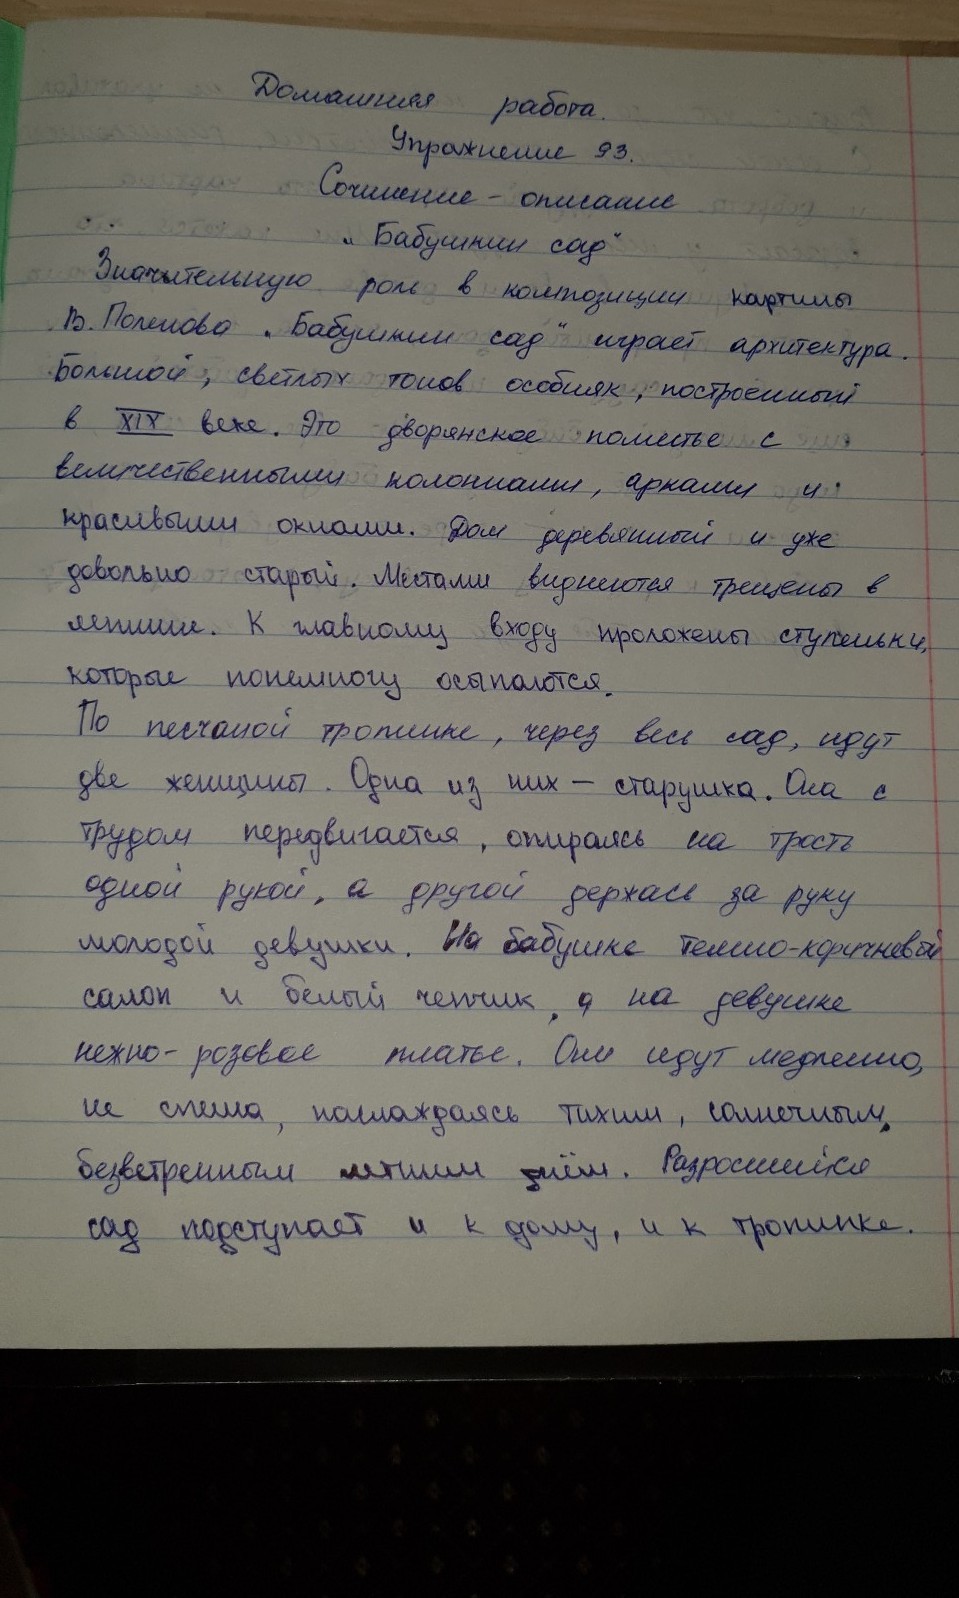 Домашняя работа.
Упражнение 93.
Сочинение - описание
„Бабушкин сад"
Значительную роль в композиции картины
В. Поленова „Бабушкин сад" играет архитектура.
Большой, светлых тонов особняк, построенный
в XIX веке. Это дворянское поместье с
величественными колоннами, арками и
красивыми окнами. Дом деревянный и уже
довольно старый. Местами виднеются трещены в
лепнине. К главному входу проложены ступеньки,
которые понемногу осыпаются.
По песчаной тропинке, через весь сад, идут
две женщины. Одна из них — старушка. Она с
трудом передвигается, опираясь на трость
одной рукой, а другой держась за руку
молодой девушки. На бабушке темно-коричневый
салоп и белый чепчик, а на девушке
нежно-розовое платье. Они идут медленно,
не спеша, наслаждаясь тихим, солнечным,
безветренным летним днём. Разросшийся
сад подступает и к дому, и к тропинке.